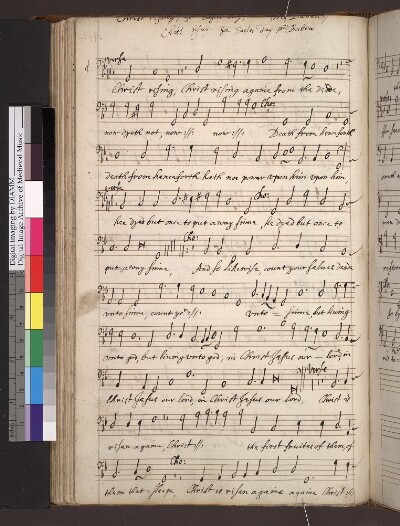 Christ rising
verse
Christ rising, Christ rising againe from the deade,
Cho:
now dyeth not, now :||: now :||: Death from henceforth
death from henceforth hath noe power upon him, upon him,
verse
Cho:
hee dyed but once to put away sinne, he dyed but once to
Cho:
put away sinne, And so likewise, count your selves dead
unto sinne, count yor :||: unto sinne, but living
unto god, but living unto god, in Christ Jesus our lord, in
verse
Christ Jesus our lord, in Christ Jesus our lord, Christ is
risen againe, Christ :||: the first fruites of them, of
Cho:
them that sleepe Christ is risen againe againe Christ :||:
Digital Imaging by DIAMM
Digital Image Archive of Medieval Music